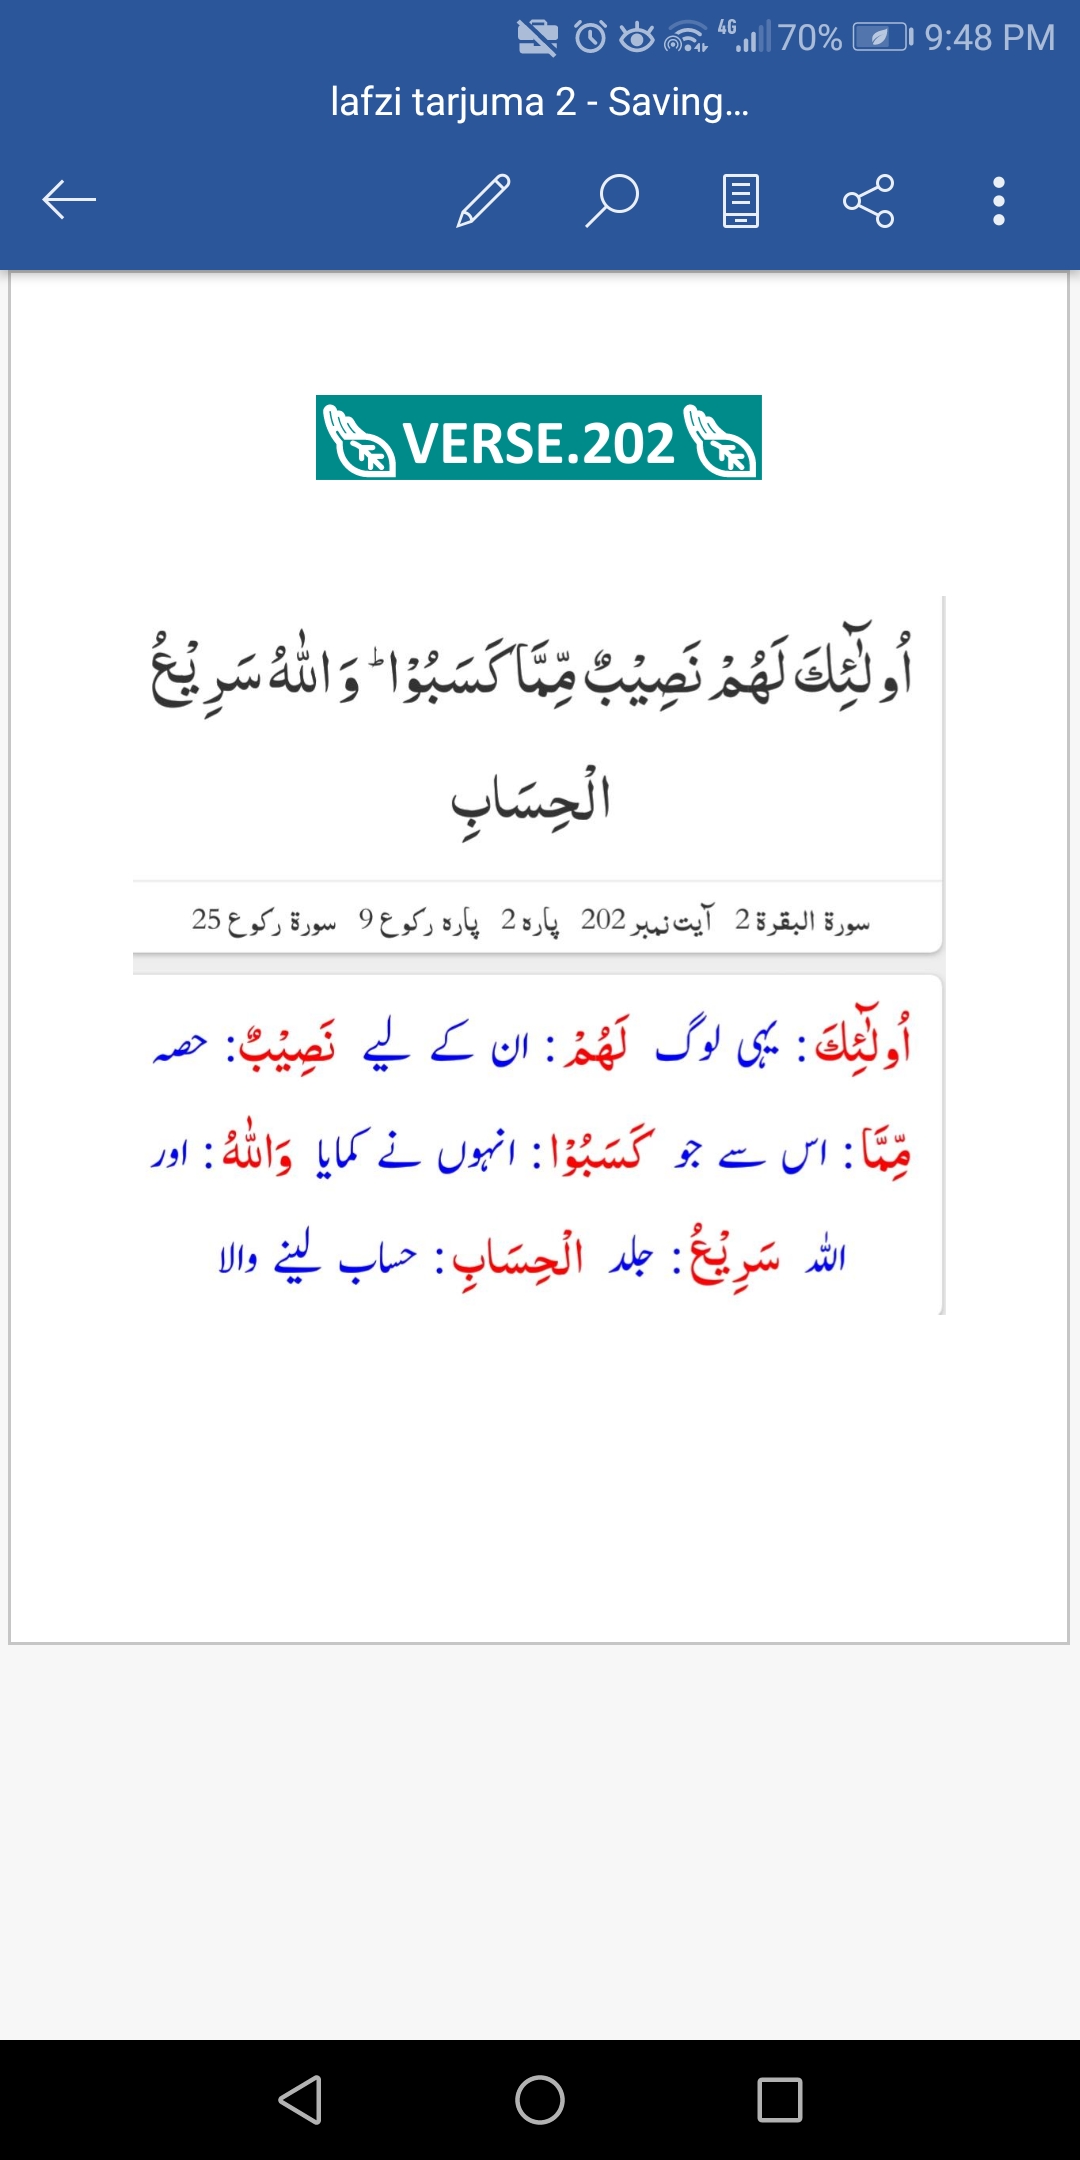 4G 70% 9:48 PM
lafzi tarjuma 2 - Saving...
VERSE.202
اُولٰٓئِكَ لَهُمْ نَصِيْبٌ مِّمَّا كَسَبُوْا ؕ وَاللّٰهُ سَرِيْعُ
الْحِسَابِ
سورة البقرة 2 آیت نمبر 202 پارہ 2 پارہ رکوع 9 سورة رکوع 25
اُولٰٓئِكَ : یہی لوگ لَهُمْ : ان کے لیے نَصِيْبٌ : حصہ
مِّمَّا : اس سے جو كَسَبُوْا : انہوں نے کمایا وَاللّٰهُ : اور
اللہ سَرِيْعُ : جلد الْحِسَابِ : حساب لینے والا